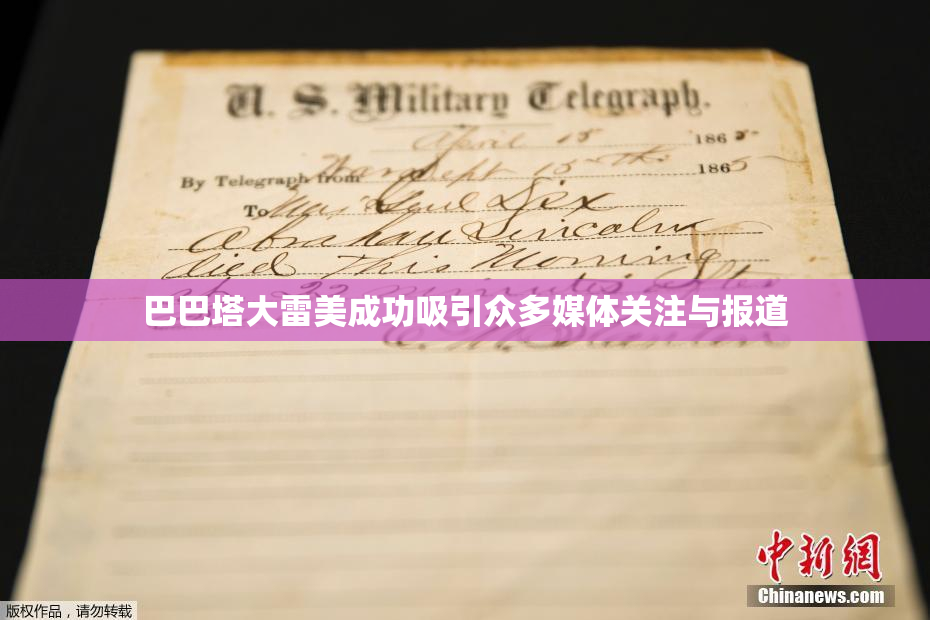 U. S. Military Telegraph.
April 15 1865
By Telegraph from War Dept 15th 1865
To Maj Genl Dix
Abraham Lincoln
died This Morning
at 22 minutes after
巴巴塔大雷美成功吸引众多媒体关注与报道
E. M. Stanton
中新网
Chinanews.com
版权作品，请勿转载